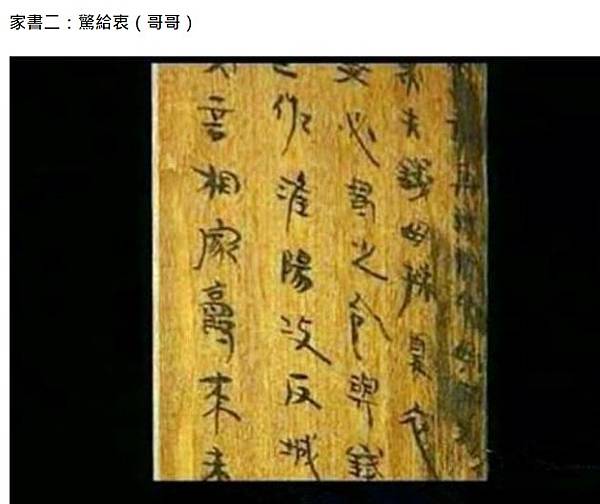 家書二：驚給衷（哥哥）
夫錢毋操夏衣
必為之令與錢
佐淮陽攻反城
言相家爵來未